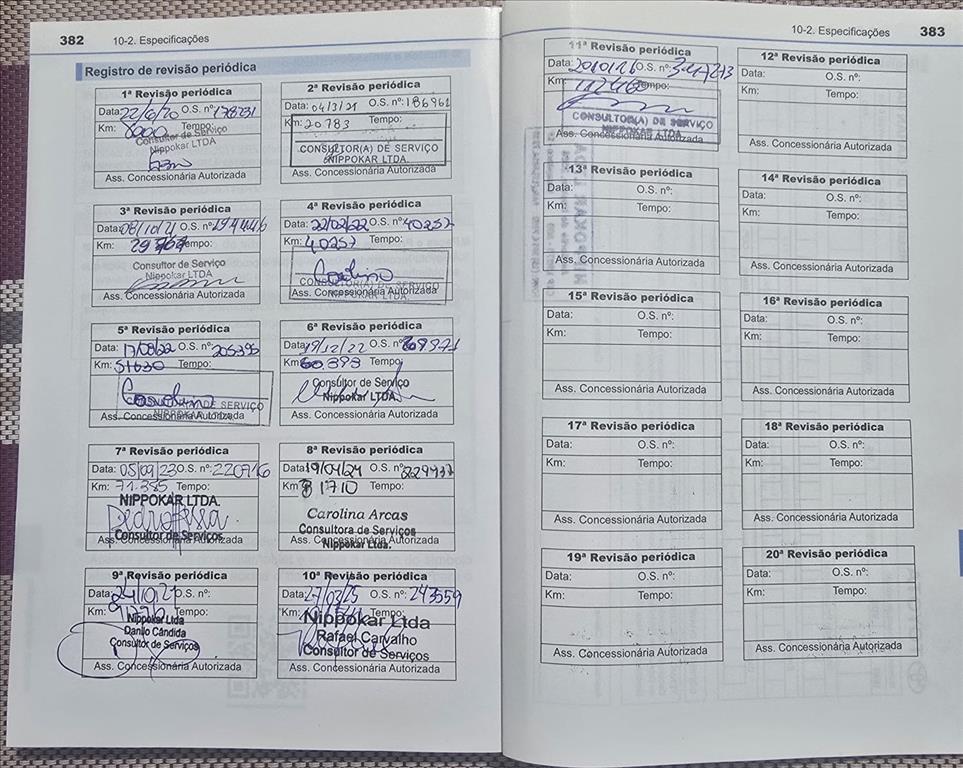 382 10-2. Especificações
Registro de revisão periódica
1ª Revisão periódica
Data: 22/6/20 O.S. nº: 178231
Km: Tempo:
Consultor de Serviço
Nippokar LTDA
Ass. Concessionária Autorizada
2ª Revisão periódica
Data: 04/3/21 O.S. nº: 186961
Km: 20783 Tempo:
CONSULTOR(A) DE SERVIÇO
NIPPOKAR LTDA.
Ass. Concessionária Autorizada
3ª Revisão periódica
Data: 08/10/21 O.S. nº:
Km: Tempo:
Consultor de Serviço
Nippokar LTDA
Ass. Concessionária Autorizada
4ª Revisão periódica
Data: 22/02/22 O.S. nº: 40257
Km: 40257 Tempo:
CONSULTOR(A) DE SERVIÇO
NIPPOKAR LTDA.
Ass. Concessionária Autorizada
5ª Revisão periódica
Data: 17/08/22 O.S. nº: 205395
Km: 51630 Tempo:
DE SERVIÇO
Ass. Concessionária Autorizada
6ª Revisão periódica
Data: 19/12/22 O.S. nº:
Km: 60.393 Tempo:
Consultor de Serviço
Nippokar LTDA.
Ass. Concessionária Autorizada
7ª Revisão periódica
Data: 05/09/23 O.S. nº: 220716
Km: 71.385 Tempo:
NIPPOKAR LTDA.
Consultor de Serviços
Ass. Concessionária Autorizada
8ª Revisão periódica
Data: 19/04/24 O.S. nº: 229937
Km: 81710 Tempo:
Carolina Arcas
Consultora de Serviços
Nippokar Ltda.
Ass. Concessionária Autorizada
9ª Revisão periódica
Data: O.S. nº:
Km: Tempo:
Nippokar Ltda
Danilo Cândida
Consultor de Serviços
Ass. Concessionária Autorizada
10ª Revisão periódica
Data: 27/03/25 O.S. nº: 243559
Km: Tempo:
Nippokar Ltda
Rafael Carvalho
Consultor de Serviços
Ass. Concessionária Autorizada
10-2. Especificações 383
11ª Revisão periódica
Data: O.S. nº:
Km: Tempo:
CONSULTOR(A) DE SERVIÇO
NIPPOKAR LTDA.
Ass. Concessionária Autorizada
12ª Revisão periódica
Data: O.S. nº:
Km: Tempo:
Ass. Concessionária Autorizada
13ª Revisão periódica
Data: O.S. nº:
Km: Tempo:
Ass. Concessionária Autorizada
14ª Revisão periódica
Data: O.S. nº:
Km: Tempo:
Ass. Concessionária Autorizada
15ª Revisão periódica
Data: O.S. nº:
Km: Tempo:
Ass. Concessionária Autorizada
16ª Revisão periódica
Data: O.S. nº:
Km: Tempo:
Ass. Concessionária Autorizada
17ª Revisão periódica
Data: O.S. nº:
Km: Tempo:
Ass. Concessionária Autorizada
18ª Revisão periódica
Data: O.S. nº:
Km: Tempo:
Ass. Concessionária Autorizada
19ª Revisão periódica
Data: O.S. nº:
Km: Tempo:
Ass. Concessionária Autorizada
20ª Revisão periódica
Data: O.S. nº:
Km: Tempo:
Ass. Concessionária Autorizada